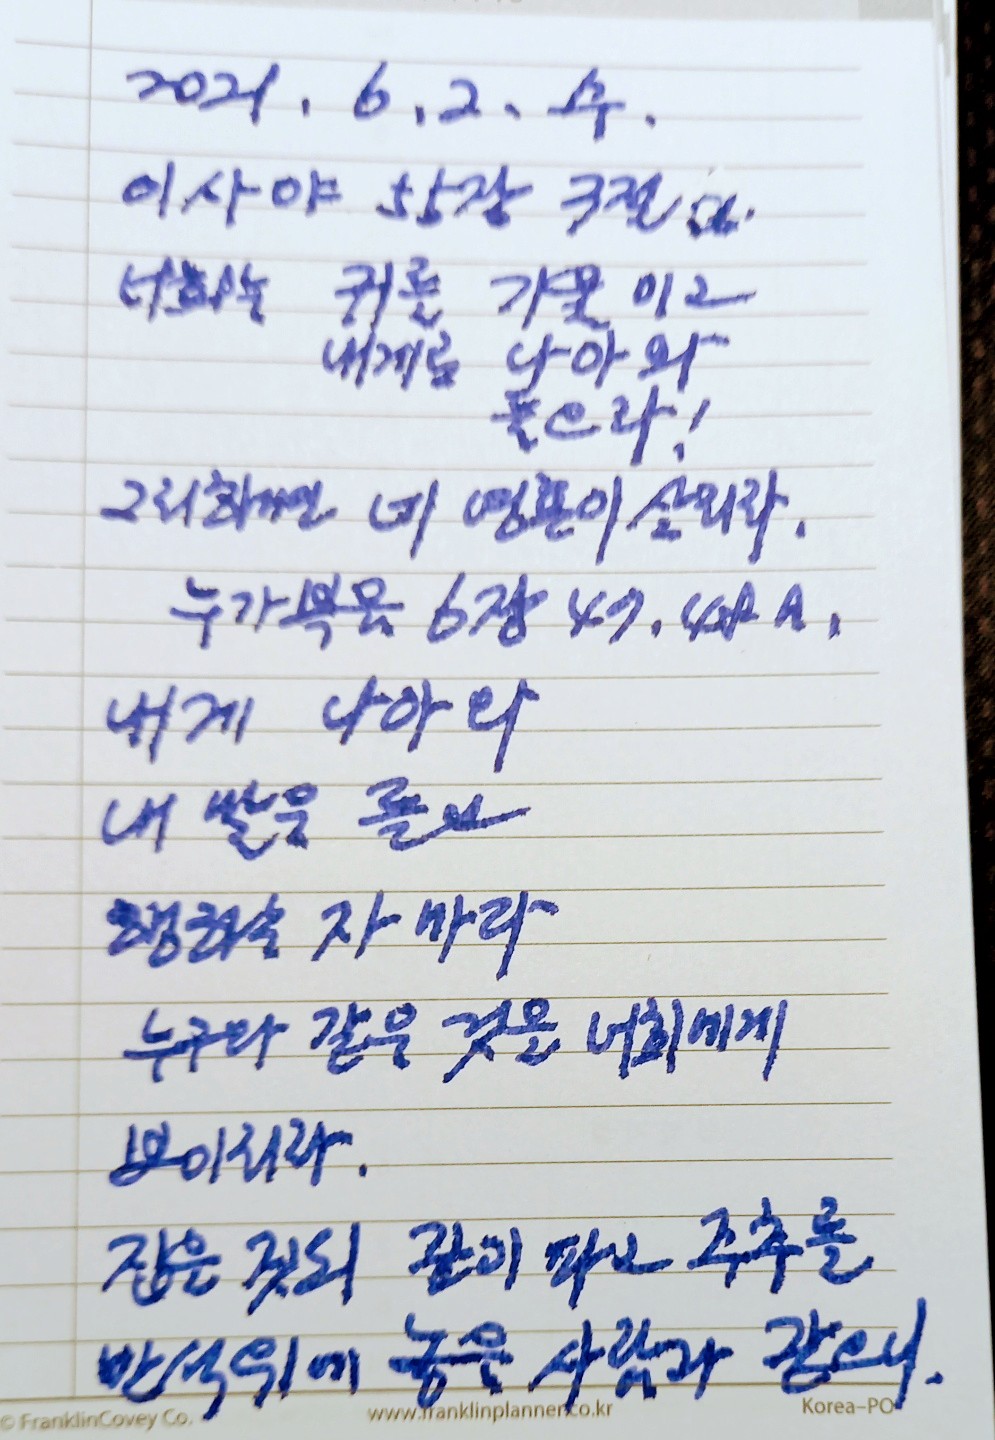 2021. 6. 2. 수.
이사야 55장 3절
너희는 귀를 기울이고
내게로 나아와
들으라!
그리하면 네 영혼이 살리라.
누가복음 6장 47. 48A.
내게 나아와
내 말을 듣고
행하는 자마다
누구와 같은 것을 너희에게
보이리라.
집을 짓되 깊이 파고 주추를
반석위에 놓은 사람과 같으니.
© FranklinCovey Co. www.franklinplanner.co.kr Korea-PO